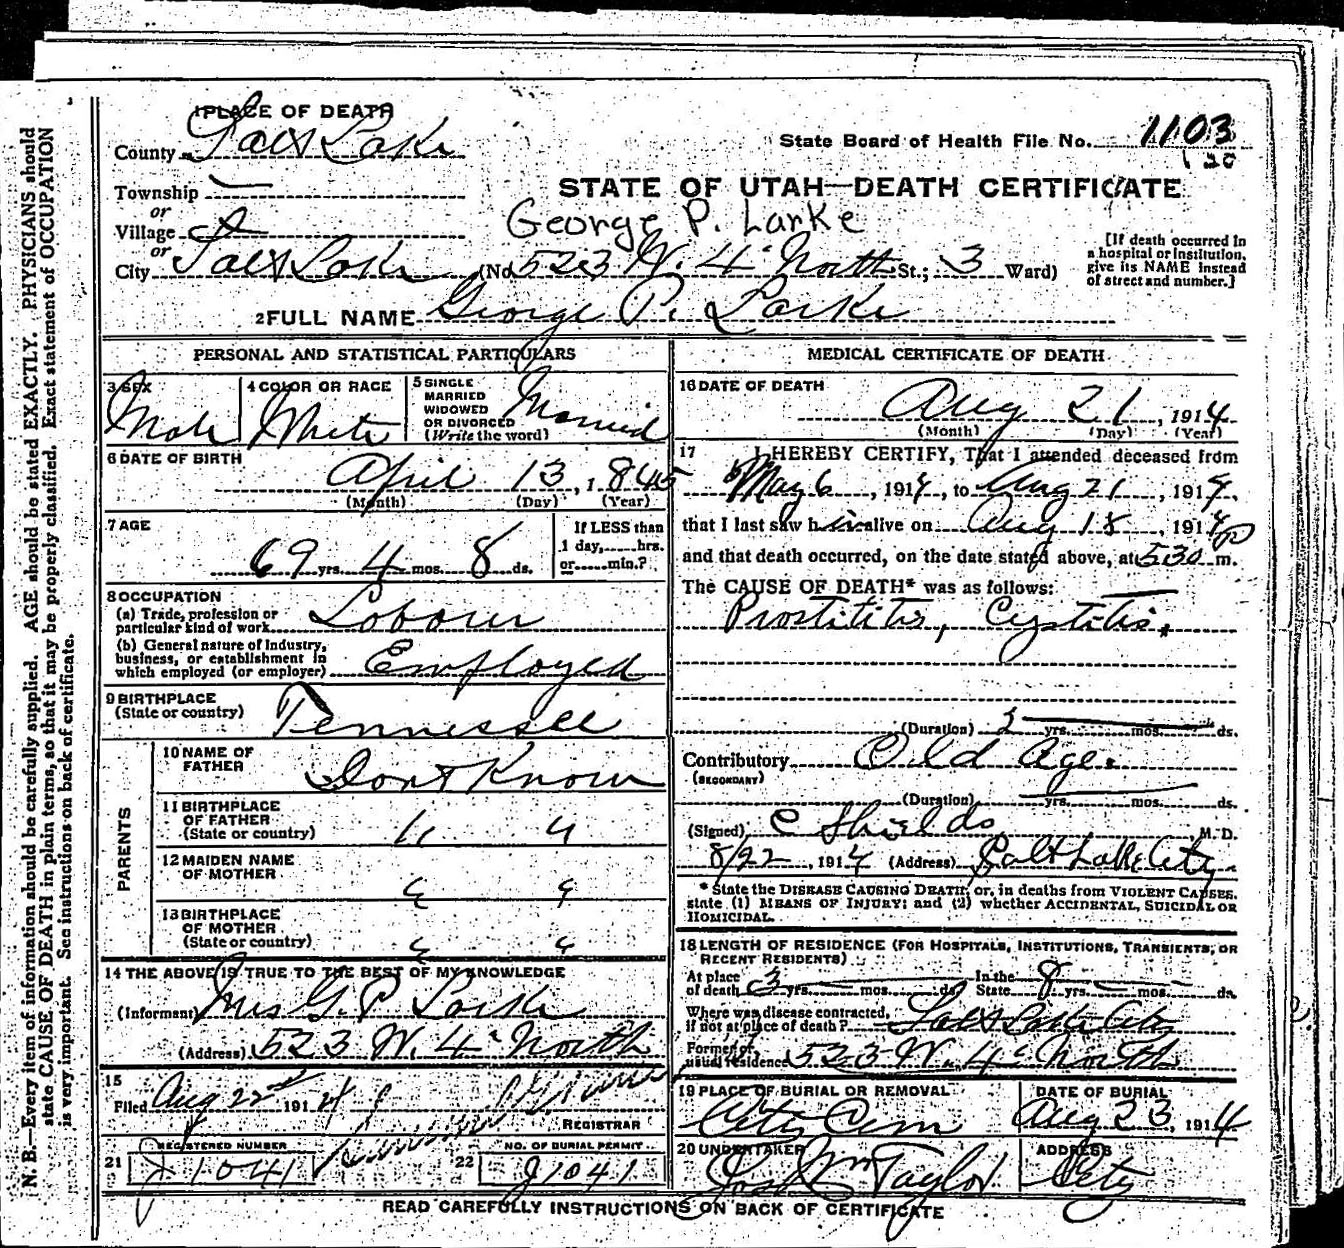 1 PLACE OF DEATH
County Salt Lake
State Board of Health File No. 1103
120
Township
or
Village
or
City Salt Lake (No. 523 W. 4" North St.; 3 Ward)
STATE OF UTAH—DEATH CERTIFICATE
George P. Larke
[If death occurred in
a hospital or institution,
give its NAME instead
of street and number.]
2 FULL NAME George P. Larke
PERSONAL AND STATISTICAL PARTICULARS
3 SEX
Male
4 COLOR OR RACE
White
5 SINGLE
MARRIED
WIDOWED
OR DIVORCED
(Write the word)
Married
6 DATE OF BIRTH
April 13, 1845
(Month) (Day) (Year)
7 AGE
69 yrs. 4 mos. 8 ds.
If LESS than
1 day,......hrs.
or......min.?
8 OCCUPATION
(a) Trade, profession or
particular kind of work Labour
(b) General nature of industry,
business, or establishment in
which employed (or employer) Employed
9 BIRTHPLACE
(State or country) Tennessee
PARENTS
10 NAME OF
FATHER
Dont Know
11 BIRTHPLACE
OF FATHER
(State or country) " "
12 MAIDEN NAME
OF MOTHER
" "
13 BIRTHPLACE
OF MOTHER
(State or country) " "
14 THE ABOVE IS TRUE TO THE BEST OF MY KNOWLEDGE
(Informant) Mrs G. P. Larke
(Address) 523 W. 4" North
15
Filed Aug 22nd 1914
REGISTRAR
REGISTERED NUMBER
21 J1041
NO. OF BURIAL PERMIT
22 J1041
MEDICAL CERTIFICATE OF DEATH
16 DATE OF DEATH
Aug 21, 1914
(Month) (Day) (Year)
17 I HEREBY CERTIFY, That I attended deceased from
May 6, 1914, to Aug 21, 1914,
that I last saw him alive on Aug 18, 1914
and that death occurred, on the date stated above, at 530 P m.
The CAUSE OF DEATH* was as follows:
Prostititis, Cystitis.
(Duration) yrs. mos. ds.
Contributory Old Age.
(SECONDARY)
(Duration) yrs. mos. ds.
(Signed) C Shields M. D.
8/22, 1914 (Address) Salt Lake City
* State the DISEASE CAUSING DEATH, or, in deaths from VIOLENT CAUSES,
state (1) MEANS OF INJURY; and (2) whether ACCIDENTAL, SUICIDAL OR
HOMICIDAL.
18 LENGTH OF RESIDENCE (FOR HOSPITALS, INSTITUTIONS, TRANSIENTS, OR
RECENT RESIDENTS)
At place
of death 3 yrs. mos. ds. In the
State 8 yrs. mos. ds.
Where was disease contracted,
if not at place of death? Salt Lake City
Former or
usual residence 523 W. 4" North
19 PLACE OF BURIAL OR REMOVAL
City Cem
DATE OF BURIAL
Aug 23, 1914
20 UNDERTAKER
Jos Wm Taylor
ADDRESS
City
READ CAREFULLY INSTRUCTIONS ON BACK OF CERTIFICATE
N. B.—Every item of information should be carefully supplied. AGE should be stated EXACTLY. PHYSICIANS should
state CAUSE OF DEATH in plain terms, so that it may be properly classified. Exact statement of OCCUPATION
is very important. See instructions on back of certificate.